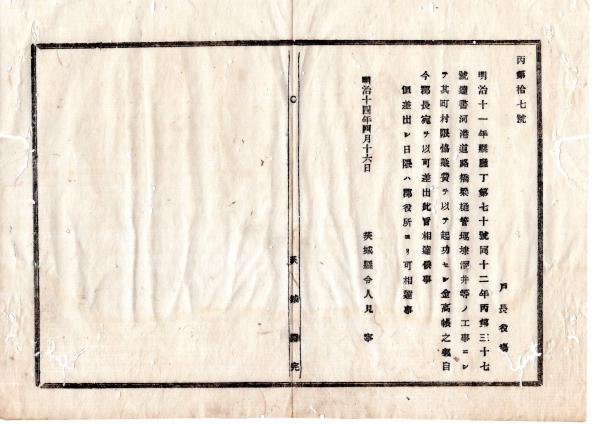 丙第拾七號
戸長役場
明治十一年縣廳丁第七十號同十二年丙第三十七
號達書河港道路橋梁樋管堰埭溜井等ノ工事ニシ
テ其町村限協議費ヲ以テ起功セシ金高帳之儀自
今郡長宛ヲ以可差出此旨相達候事
但差出シ日限ハ郡役所ヨリ可相達事
明治十四年四月十六日
茨城縣令人見寧
茨城縣